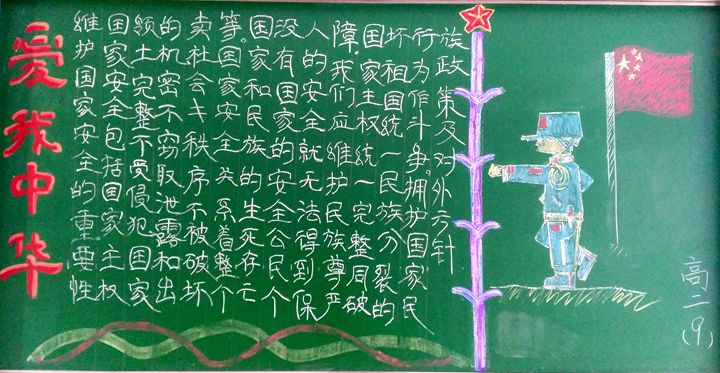 爱我中华
维护国家安全的重要性
国家安全包括国家主权
领土完整不受侵犯国家
的机密不窃取泄露和出
卖社会秩序不被破坏
等。国家安全关系着整个
国家和民族的生死存亡
没有国家的安全公民个
人的安全就无法得到保
障。我们应维护民族尊严
国家主权统一完整同破
坏祖国统一民族分裂的
行为作斗争。拥护国家民
族政策及对外方针
高二(9)